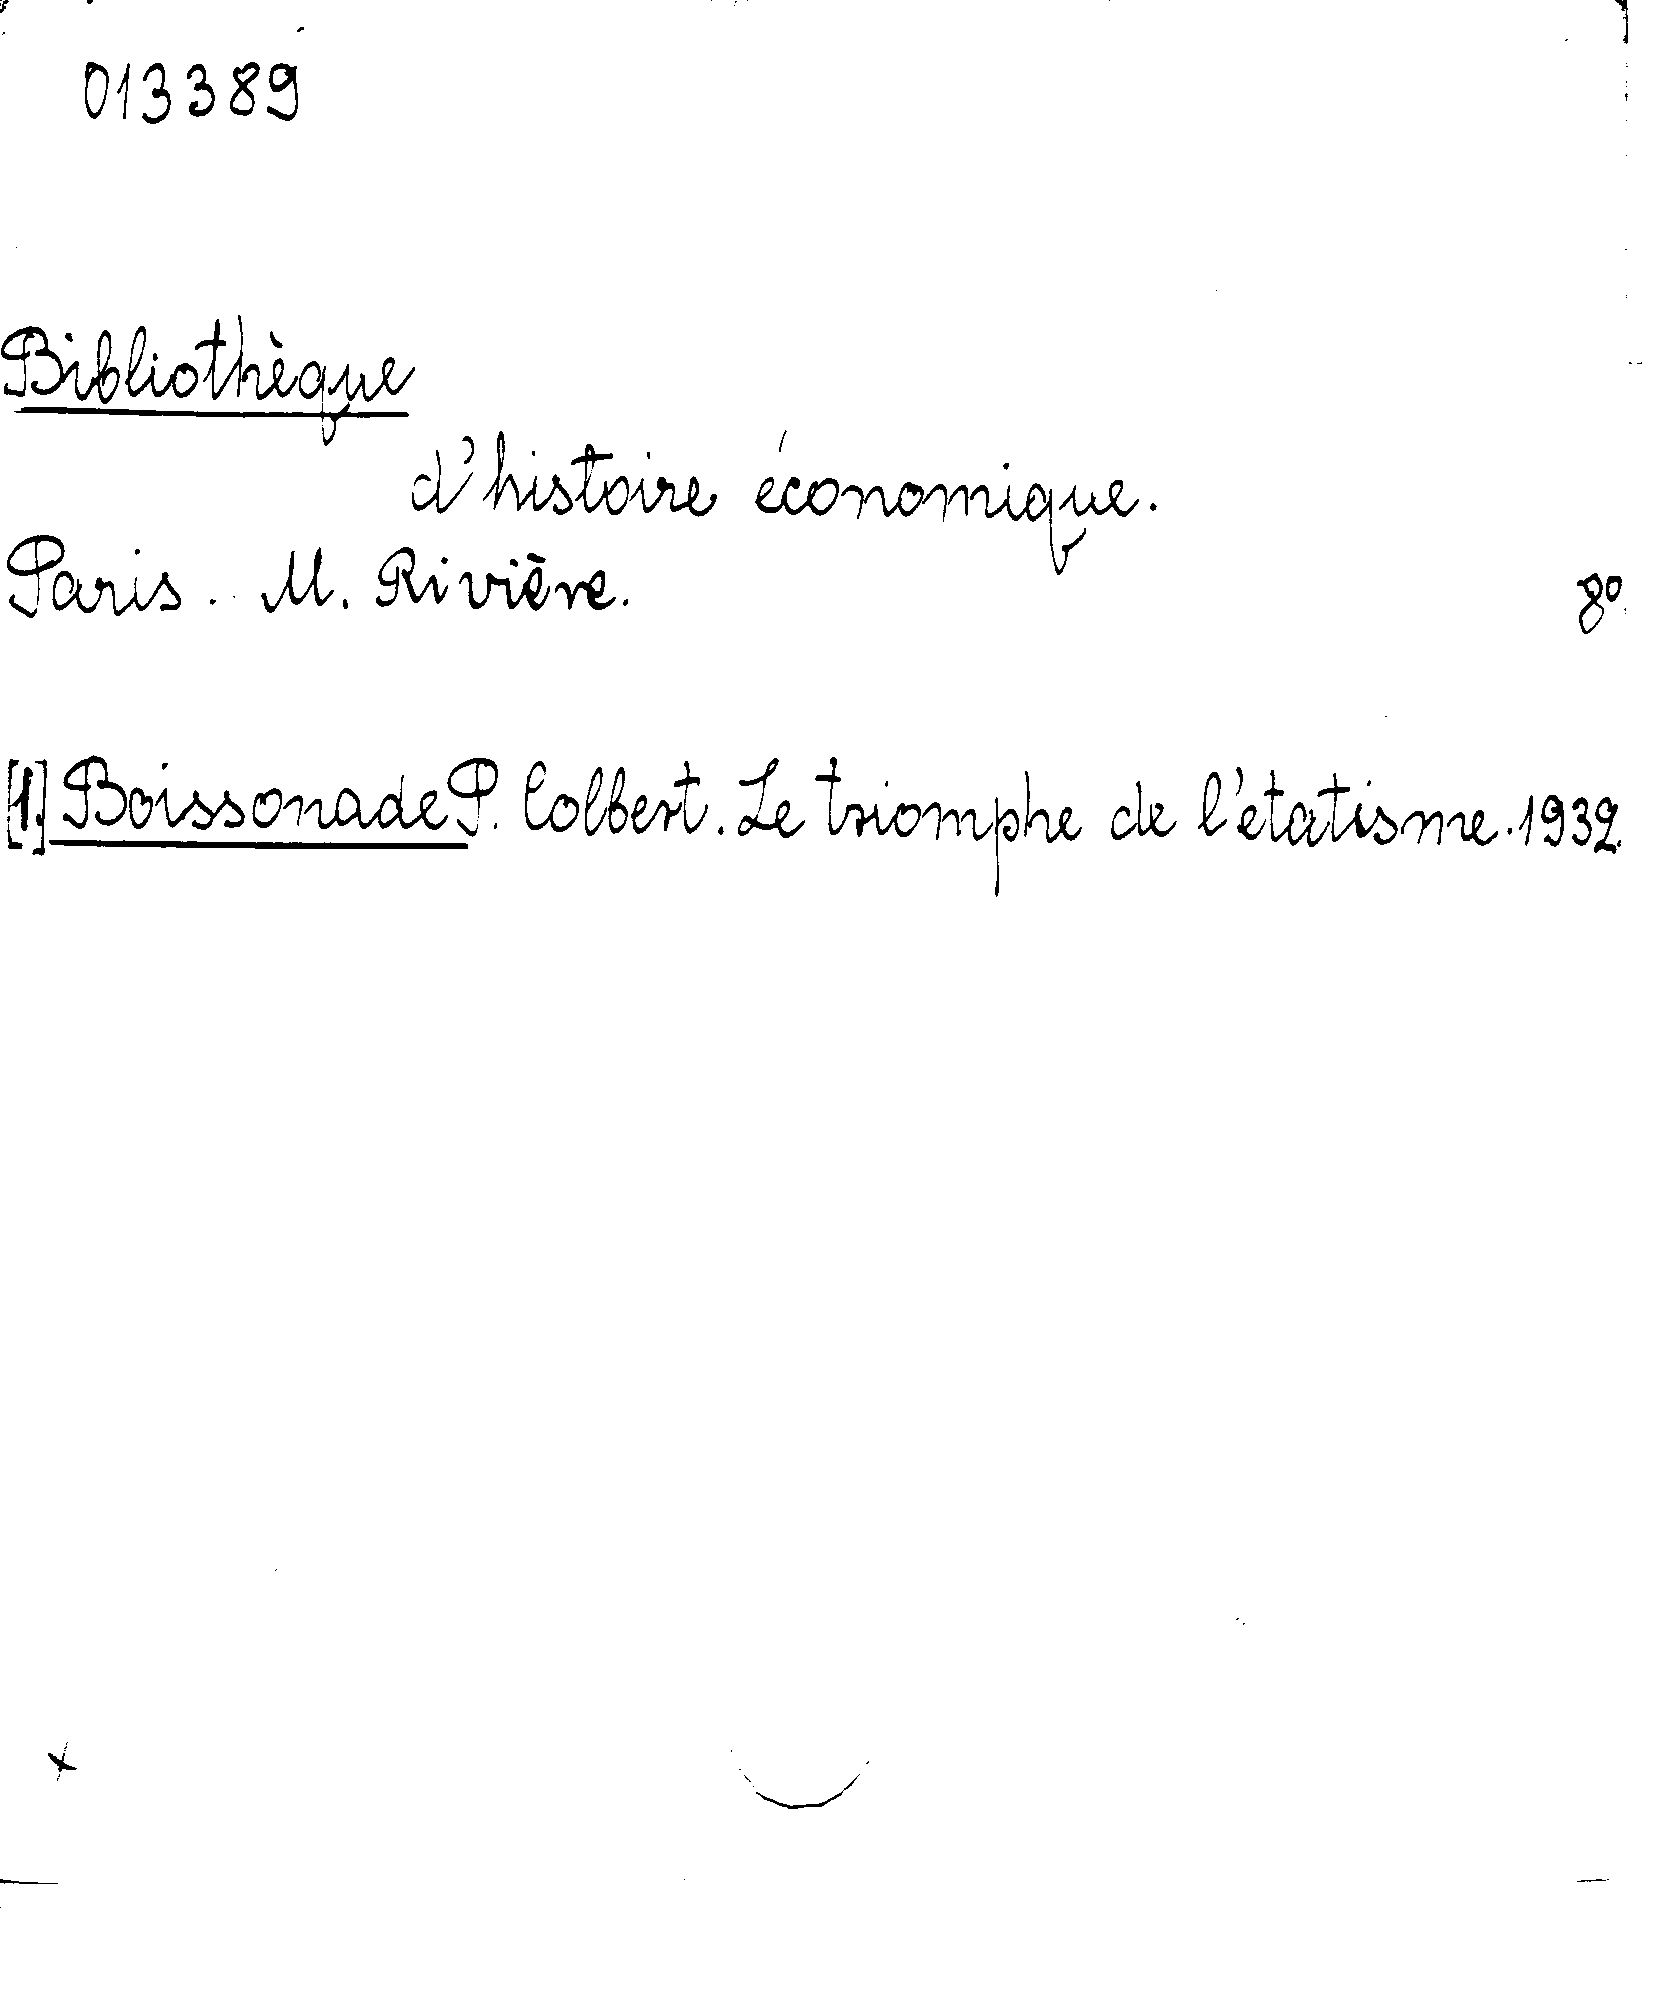 013389
Bibliothèque
d'histoire économique.
Paris. M. Rivière. 8º
[1.] Boissonade P. Colbert. Le triomphe de l'étatisme. 1932.